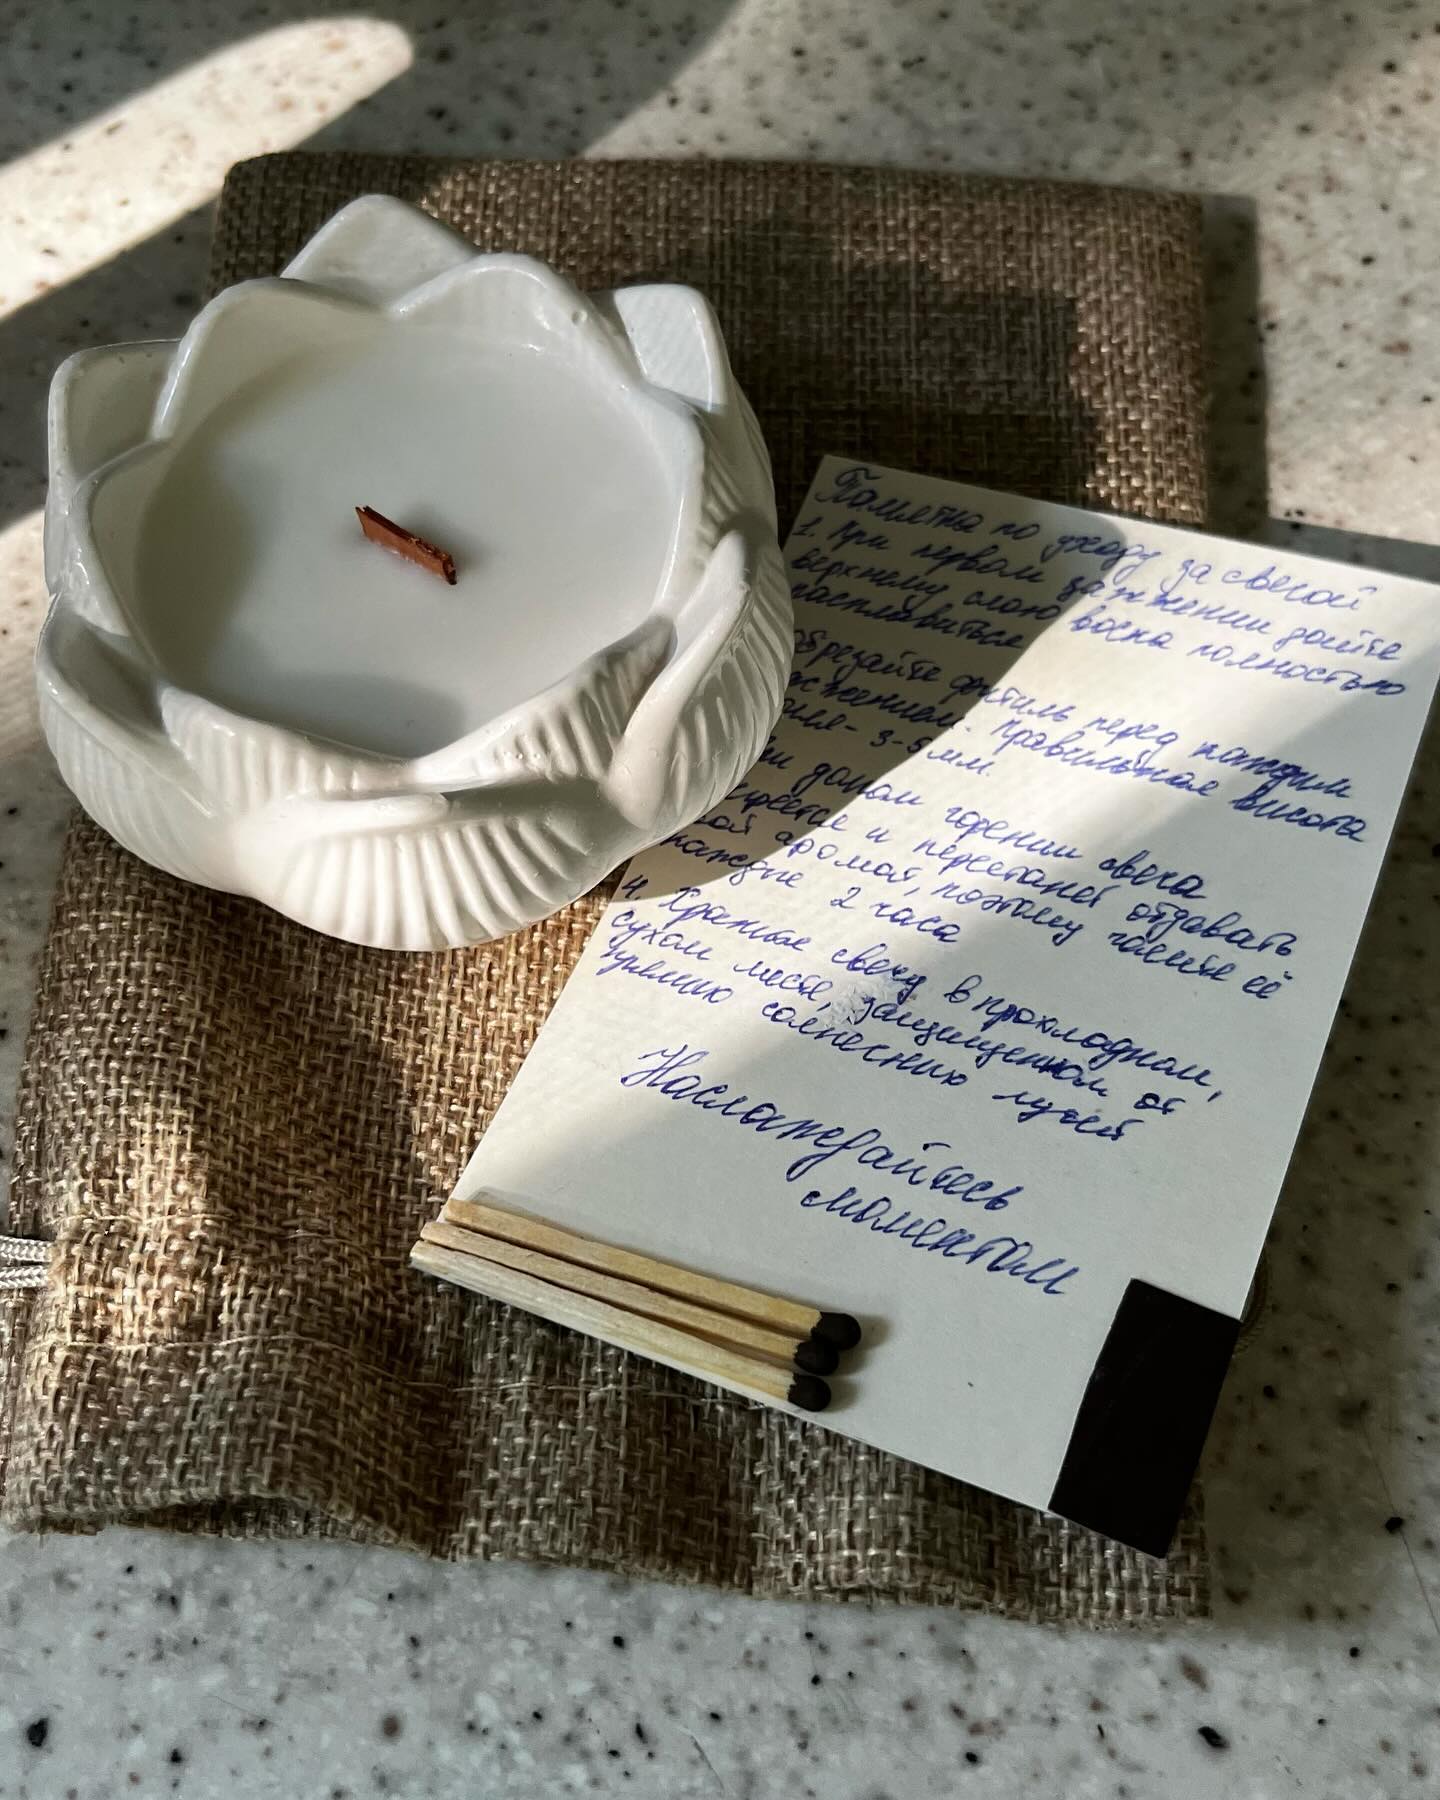 Памятка по уходу за свечой
1. При первом зажжении дайте
верхнему слою воска полностью
расплавиться
обрезайте фитиль перед каждым
зжжением. Правильная высота
3-5 мм.
горении свеча
и перестанет отдавать
свой аромат, поэтому гасите её
каждые 2 часа
4. Храните свечу в прохладном,
сухом месте, защищенном от
прямых солнесних лучей
Наслаждайтесь
моментом